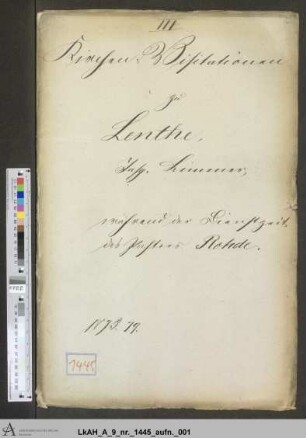 III
Kirchen-Visitationen
zu
Lenthe,
Insp. Limmer,
während der Dienstzeit
des Pastors Rohde.
1873. 79.
1445
LkAH_A_9_nr._1445_aufn._001